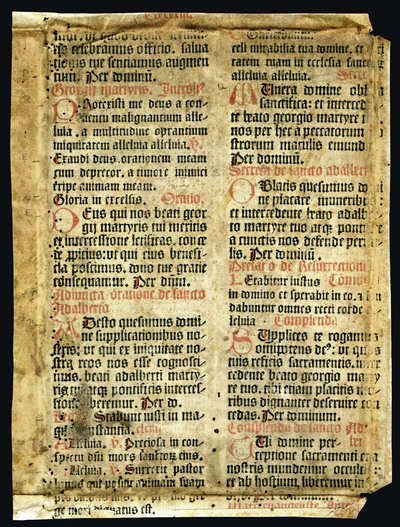 quos celebramus officio. salua
tionis tue sentiamus augmen
tum. Per dominū.
Georgij martyris. Introit9
Protexisti me deus a con-
uentu malignantium alle
luia. a multitudine operantium
iniquitatem alleluia alleluia. V.
Exaudi deus orationem meam
cum deprecor. a timore inimici
eripe animam meam.
Gloria in excelsis. Oratio.
Deus qui nos beati geor
gij martyris tui meritis
et intercessione letificas. conce
de ꝓpicius: vt qui eius benefi
cia poscimus. dono tue gratie
consequamur. Per dnm̄.
Adiungā oratione de sancto
Adalberto
Adesto quesumus domi-
ne supplicationibus no-
stris: vt qui ex iniquitate no-
stra reos nos esse cognosci-
mus. beati adalberti martyris
tui atqꝫ pontificis interces-
sione liberemur. Per do.
Stabunt iusti in ma-
gna constantia.
Alleluia. V. Preciosa in con-
spectu dm̄ mors sanctorū eius.
Alleluia. V. Surrexit pastor
bonus qui posuit animam suam
pro ouibus suis. et pro
ge mori dignatus est.
celi mirabilia tua domine. et
tatem tuam in ecclesia
alleluia alleluia.
Munera domine
sanctifica: et interced
te beato georgio martyre
nos per hec a peccatorum
strorum maculis emund
Per dominū.
Secreta de sancto adalber
Oblatis quesumus do
ne placare muneribus
et intercedente beato adal
to martyre tuo atqꝫ ponti
a cunctis nos defende peri
lis. Per dominū.
Prefatio de Resurrectione
Letabitur iustus
in domino et sperabit in eo.
dabuntur omnes recti corde
leluia Complenda
Supplices te rogamus
omnipotens de9: vt quos
tuis reficis sacramentis. inter
cedente beato georgio marty
re tuo. tibi etiam placitis mo
ribus dignanter deseruire con
cedas. Per dominum.
Complenda de sancto Ad
Tui domine per-
ceptione sacramenti
nostris mundemur occultis
et ab hostium. liberemur in